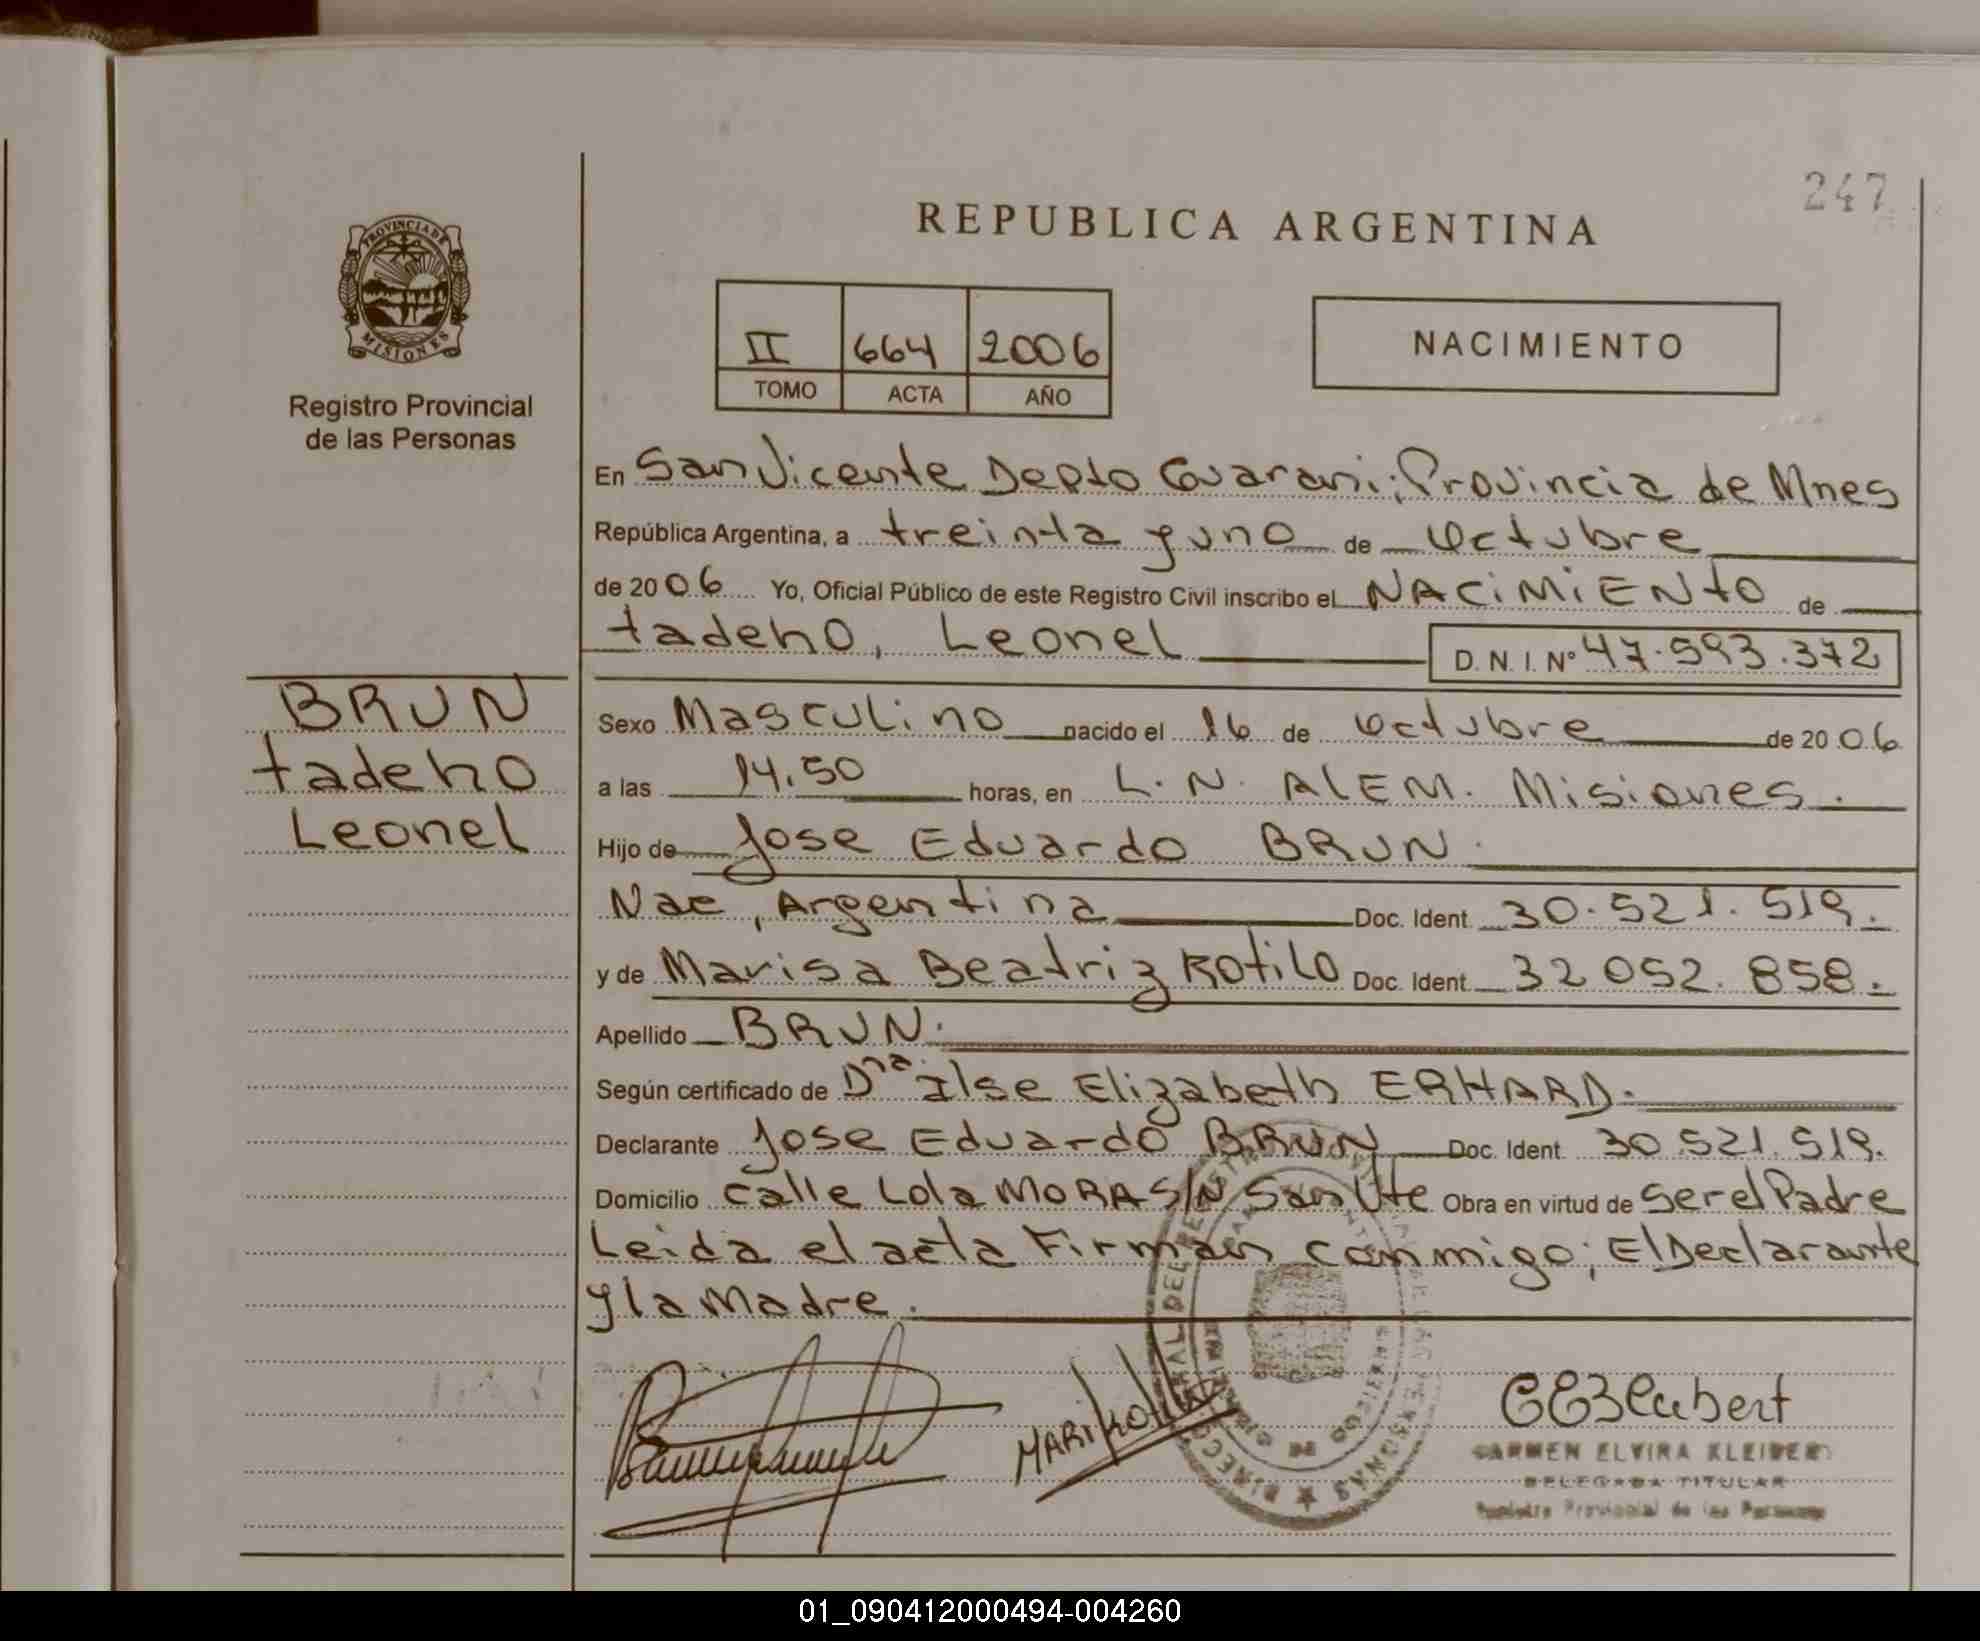 247
REPUBLICA ARGENTINA
PROVINCIA DE
MISIONES
Registro Provincial
de las Personas
II 664 2006
TOMO ACTA AÑO
NACIMIENTO
En San Vicente Depto Guarani; Provincia de Mnes
República Argentina, a treinta y uno de Octubre
de 2006 Yo, Oficial Público de este Registro Civil inscribo el NACIMIENTO de
tadeho, Leonel D.N.I. Nº 47.593.372
BRUN
tadeho
Leonel
Sexo Masculino nacido el 16 de Octubre de 2006
a las 14.50 horas, en L. N. ALEM. Misiones.
Hijo de Jose Eduardo BRUN.
Nac, Argentina Doc. Ident. 30.521.519.
y de Marisa Beatriz Kotilo Doc. Ident. 32 052.858.
Apellido BRUN.
Según certificado de Dña. Ilse Elizabeth ERHARD.
Declarante Jose Eduardo BRUN Doc. Ident. 30.521.519.
Domicilio calle Lola MORA S/N San Vte Obra en virtud de ser el Padre
Leida el acta Firman conmigo; El Declarante
y la Madre.
CARMEN ELVIRA KLEIBER
DELEGADA TITULAR
Registro Provincial de las Personas
01_090412000494-004260